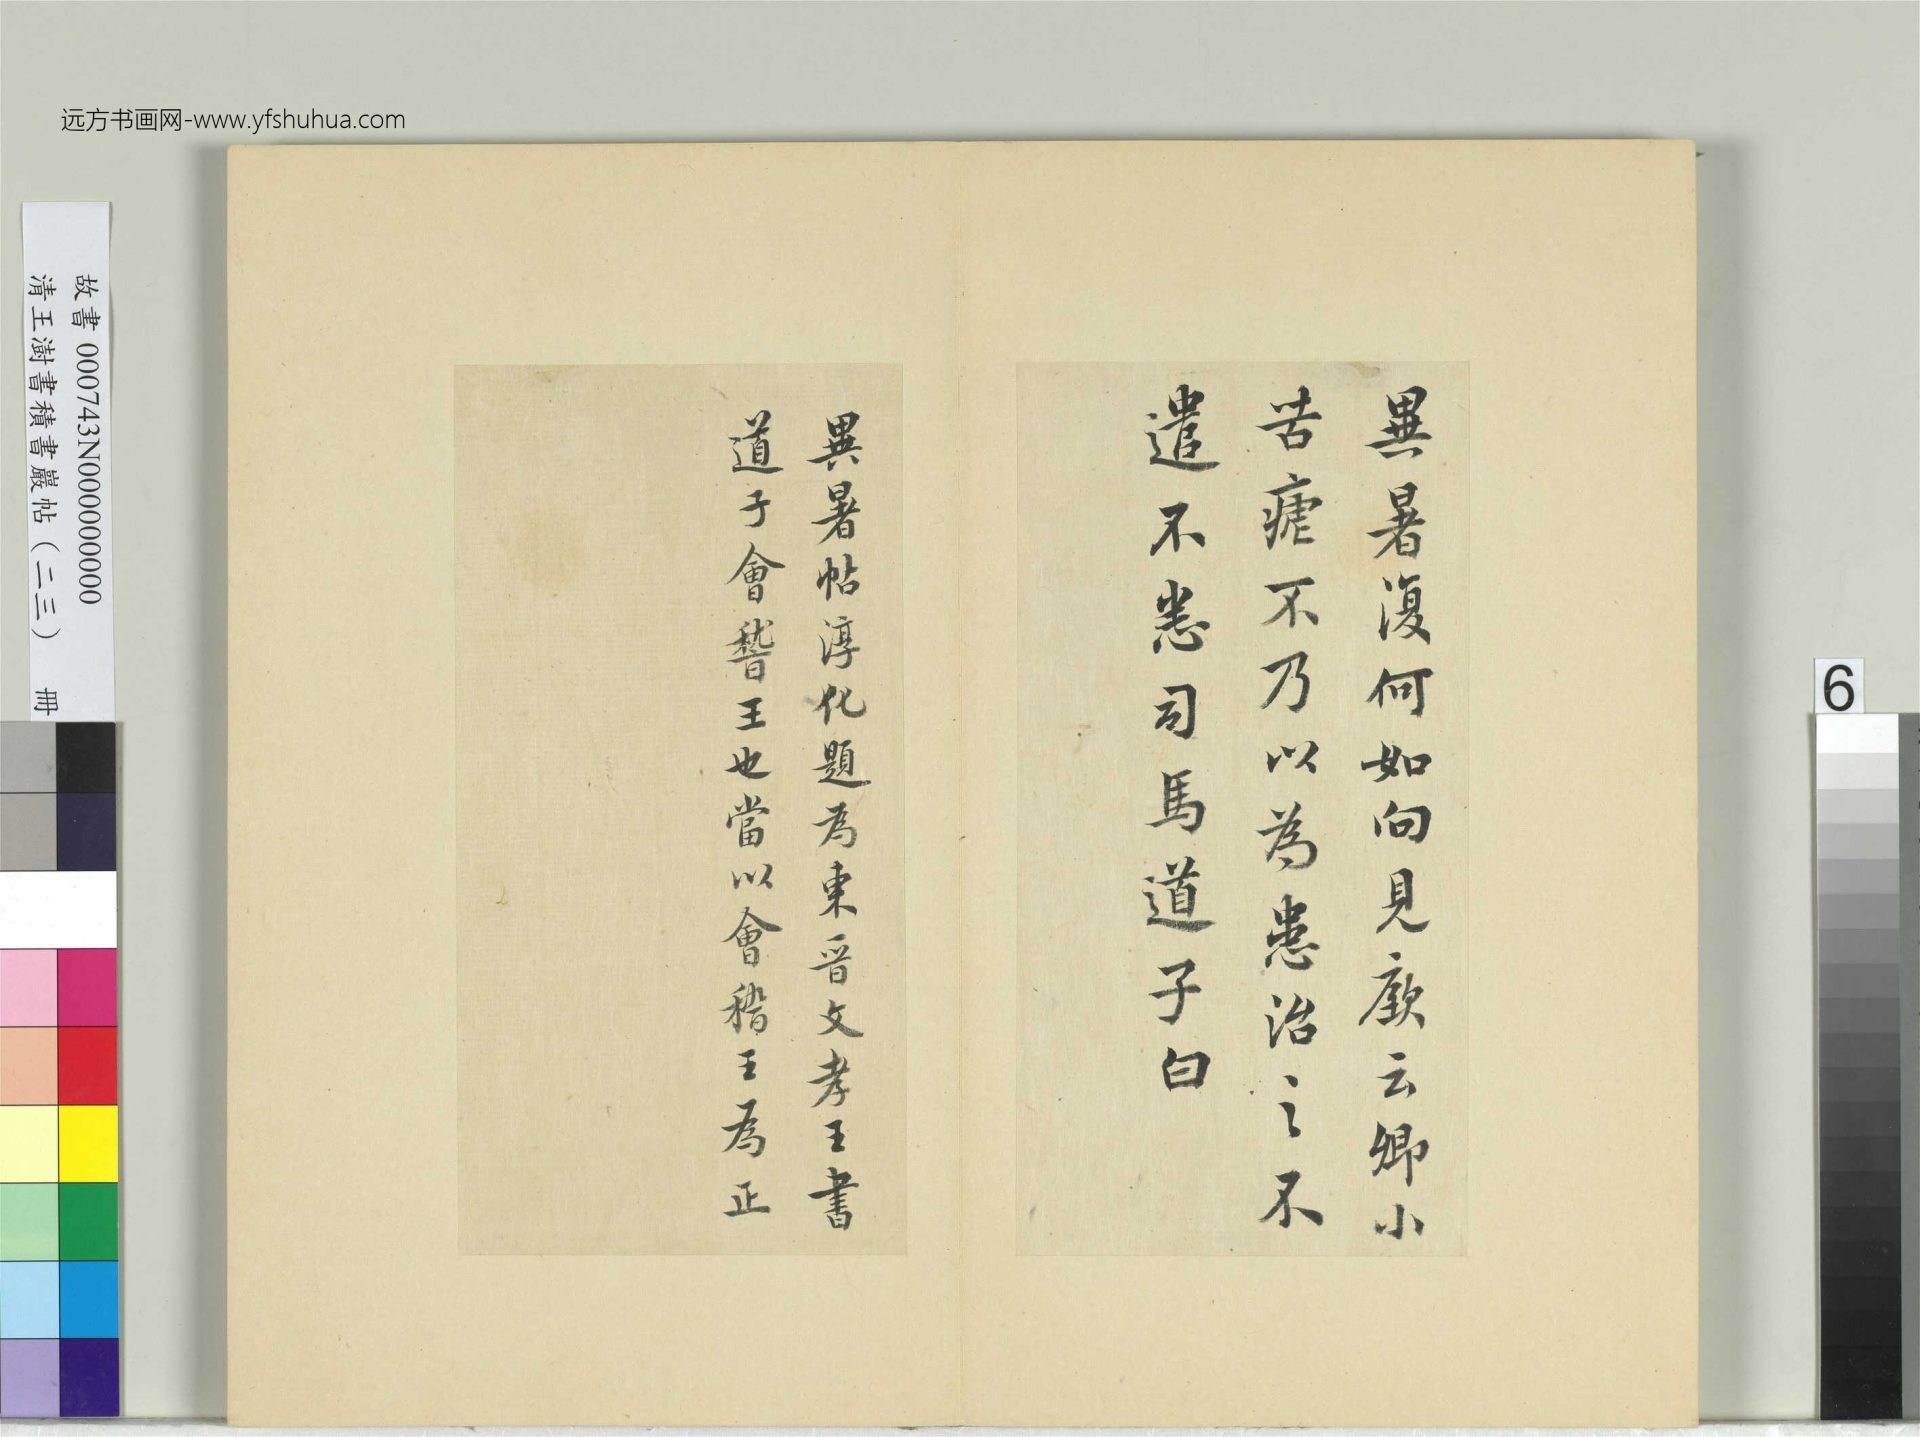 远方书画网-www.yfshuhua.com
故書 000743N000000000
清王澍書積書巖帖(二三) 冊
6
異暑復何如向見廞云卿小
苦瘧不乃以為患治之不
遣不悉司馬道子白
異暑帖淳化題為東晉文孝王書
道子會稽王也當以會稽王為正